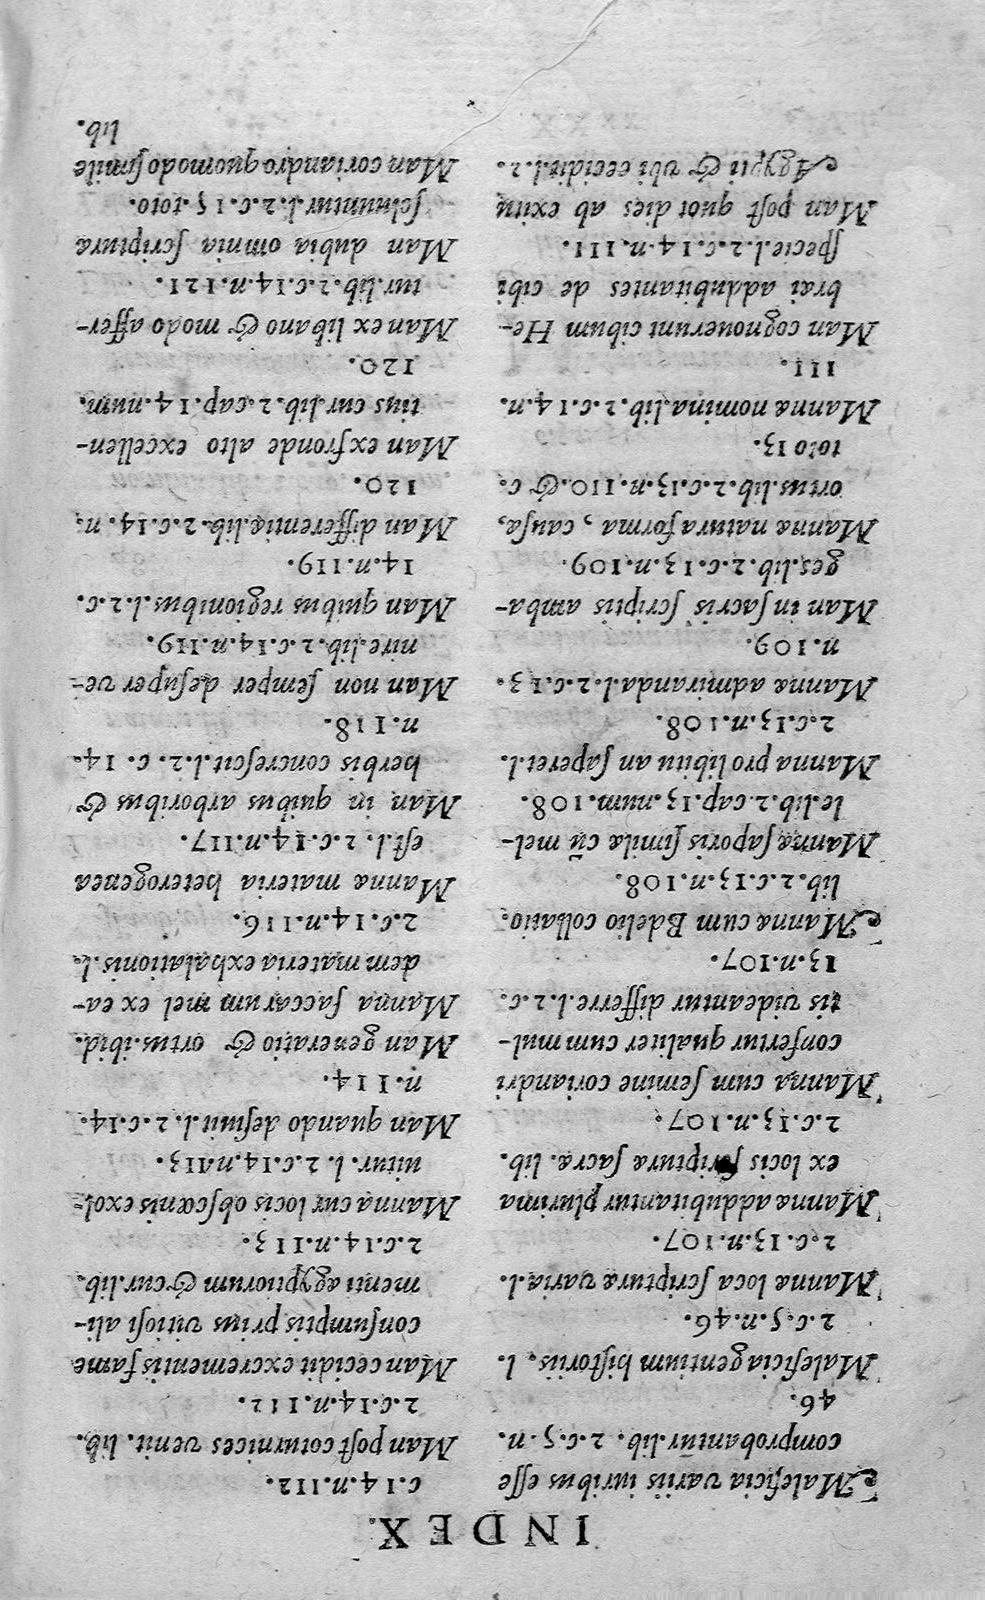 INDEX.
Maleficia variis iuribus esse
comprobantur. lib. 2.c.5. n.
46.
Maleficia gentium historiis. l.
2.c.5.n.46.
Mannæ loca scripturæ varia.l.
2.c.13.n.107.
Mannæ addubitantur plurima
ex locis scripturæ sacræ. lib.
2.c.13.n.107.
Manna cum semine coriandri
confertur qualiter cum mul-
tis videantur differre.l.2.c.
13.n.107.
Manna cum Bdelio collatio.
lib.2.c.13.n.108.
Mannæ saporis simila cũ mel-
le.lib.2.cap.13.num.108.
Manna pro libitu an saperet.l.
2.c.13.n.108.
Manna admiranda.l.2.c.13.
n.109.
Man in sacris scriptis amba-
ges.lib.2.c.13.n.109.
Mannæ natura forma, causa,
ortus.lib.2.c.13.n.110.& c.
toto 13.
Mannæ nomina.lib.2.c.14.n.
111.
Man cognouerunt cibum He-
brai addubitantes de cibi
specie.l.2.c.14.n.111.
Man post quot dies ab exitu
Ægypti & vbi cecidit.l.2.
c.14.n.112.
Man post coturnices venit. lib.
2.c.14.n.112.
Man cecidit excrementis fame
consumptis prius vitiosi ali-
menti ægyptiorum & cur.lib.
2.c.14.n.113.
Manna cur locis obscœnis exol-
uitur. l. 2.c.14.n.113.
Man quando desiuit.l.2.c.14.
n.114.
Man generatio & ortus.ibid.
Manna saccarum mel ex ea-
dem materia exhalationis.l.
2.c.14.n.116.
Mannæ materia heterogenea
est.l. 2.c.14.n.117.
Man in quibus arboribus &
herbis concrescit.l.2. c. 14.
n.118.
Man non semper desuper ve-
nire.lib.2.c.14.n.119.
Man quibus regionibus.l.2.c.
14.n.119.
Man differentiæ.lib.2.c.14. n.
120.
Man ex fronde alto excellen-
tius cur.lib.2.cap.14.num.
120.
Man ex libano & modo affer-
tur.lib.2.c.14.n.121.
Man dubia omnia scripturæ
soluuntur.l.2.c.15.toto.
Man coriandro quomodo simile
lib.